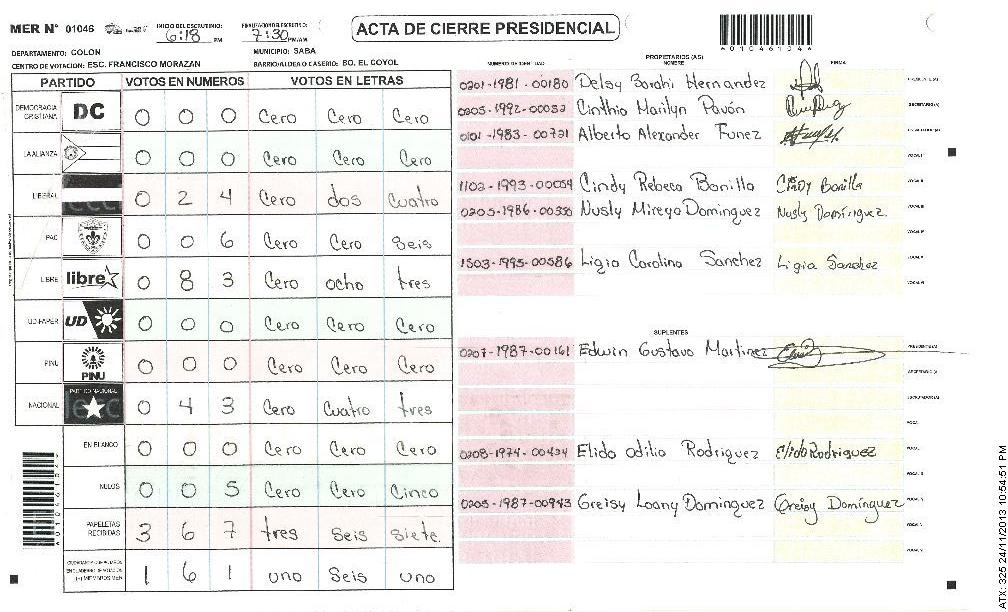 MER N° 01046
INICIO DEL ESCRUTINIO: 6:18 PM
FINALIZACION DEL ESCRUTINIO: 7:30 PM/AM
ACTA DE CIERRE PRESIDENCIAL
A01046104A
DEPARTAMENTO: COLON
MUNICIPIO: SABA
CENTRO DE VOTACION: ESC. FRANCISCO MORAZAN
BARRIO/ALDEA O CASERIO: BO. EL COYOL
PARTIDO VOTOS EN NUMEROS VOTOS EN LETRAS
DEMOCRACIA CRISTIANA DC 0 0 0 Cero Cero Cero
LA ALIANZA 0 0 0 Cero Cero Cero
LIBERAL 0 2 4 Cero dos Cuatro
PAC 0 0 6 Cero Cero Seis
LIBRE libre 0 8 3 Cero ocho tres
UD-FAPER UD 0 0 0 Cero Cero Cero
PINU PINU 0 0 0 Cero Cero Cero
NACIONAL PARTIDO NACIONAL 0 4 3 Cero Cuatro tres
EN BLANCO 0 0 0 Cero Cero Cero
NULOS 0 0 5 Cero Cero Cinco
PAPELETAS RECIBIDAS 3 6 7 tres Seis Siete
1 6 1 uno Seis uno
PROPIETARIOS (AS)
NUMERO DE IDENTIDAD NOMBRE FIRMA
0201-1981-00180 Delsy Sarahi Hernandez PRESIDENTE(A)
0205-1992-00032 Cinthia Marilyn Pavón SECRETARIO(A)
0101-1983-00721 Alberto Alexander Funez ESCRUTADOR(A)
VOCAL I
1102-1993-00054 Cindy Rebeca Bonilla Cindy Bonilla VOCAL II
0205-1986-00330 Nusly Mireya Dominguez Nusly Domínguez. VOCAL III
1503-1995-00586 Ligia Carolina Sanchez Ligia Sanchez VOCAL V
VOCAL VI
SUPLENTES
0207-1987-00161 Edwin Gustavo Martinez PRESIDENTE(A)
SECRETARIO(A)
ESCRUTADOR(A)
0208-1974-00424 Elida Odilia Rodriguez Elida Rodriguez
0205-1987-00943 Greisy Loany Dominguez Greisy Domínguez
ATX: 325 24/11/2013 10:54:51 PM